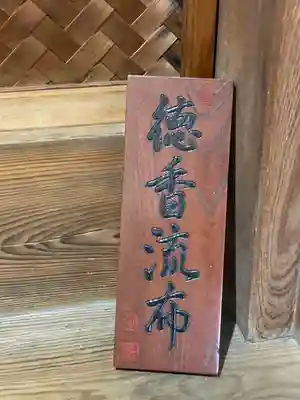 徳香流布